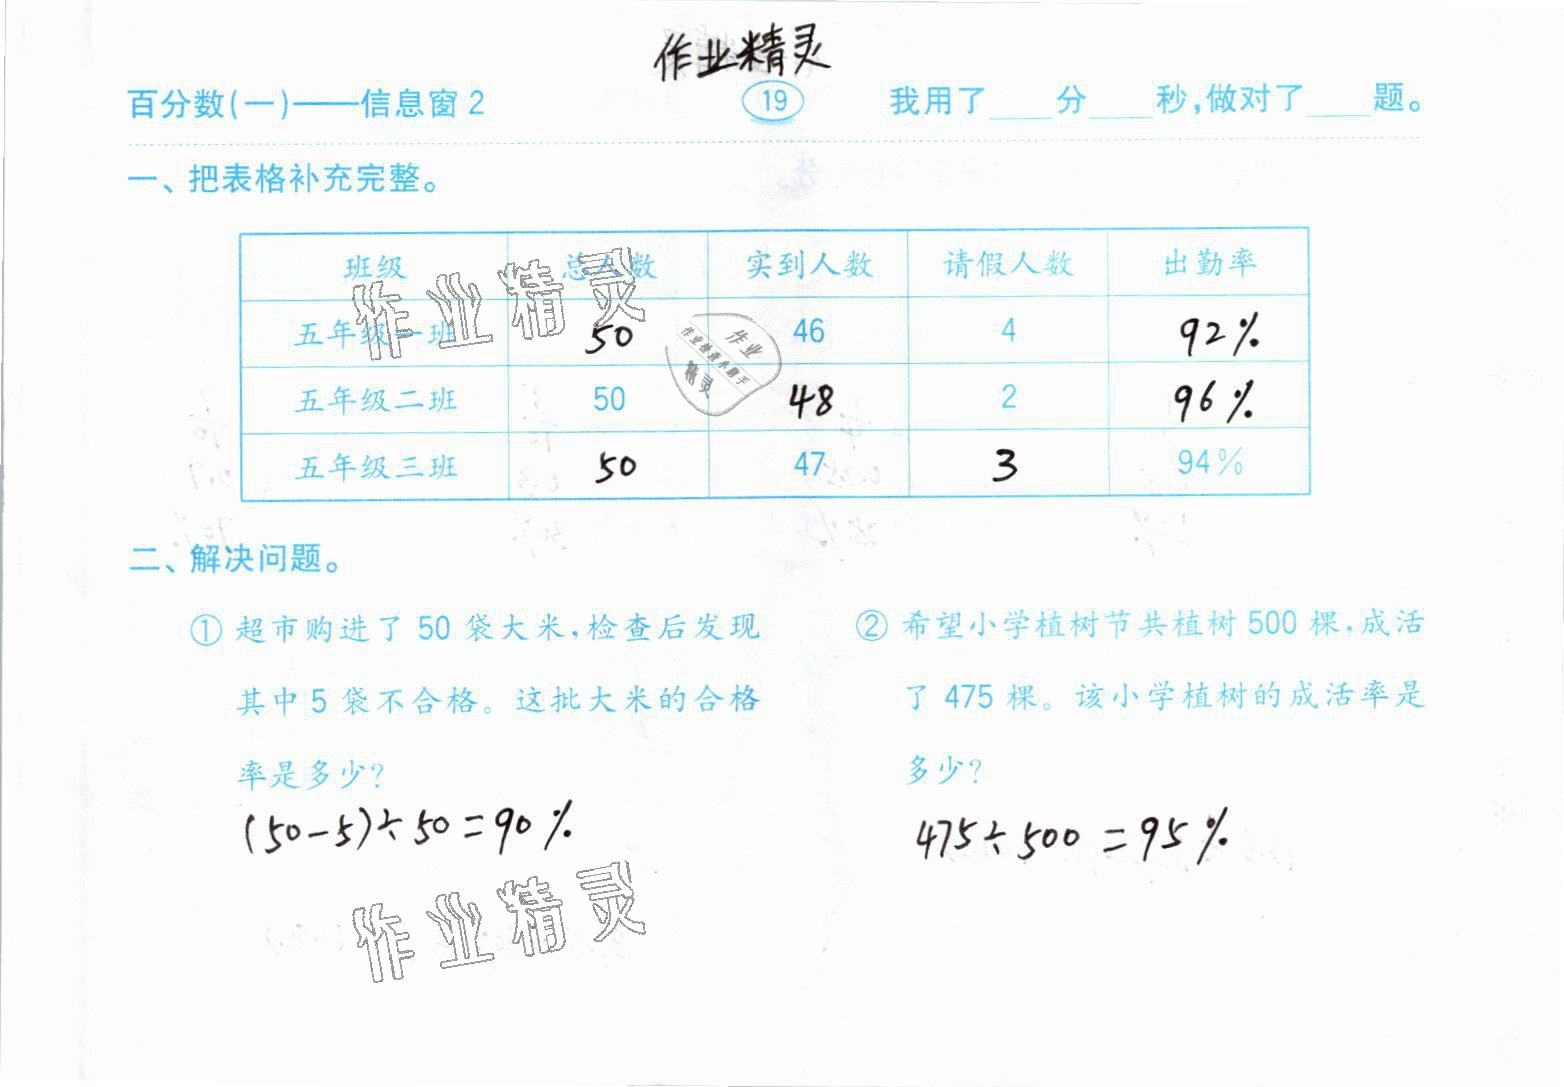 作业精灵
百分数(一)——信息窗2 19 我用了____分____秒,做对了____题。
一、把表格补充完整。
班级 总人数 实到人数 请假人数 出勤率
五年级一班 50 46 4 92%
五年级二班 50 48 2 96%
五年级三班 50 47 3 94%
作业精灵
作业
作业快速小助手
精灵
二、解决问题。
① 超市购进了 50 袋大米,检查后发现
其中 5 袋不合格。这批大米的合格
率是多少?
(50-5)÷50=90%
② 希望小学植树节共植树 500 棵,成活
了 475 棵。该小学植树的成活率是
多少?
475÷500=95%
作业精灵